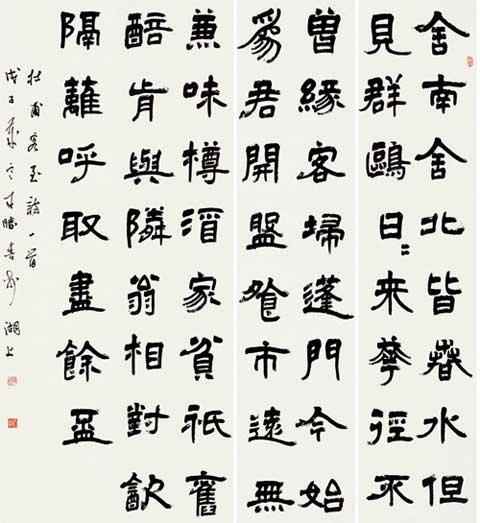 舍南舍北皆春水但
見群鷗日〻來華徑不
曾緣客埽蓬門今始
爲君開盤飱市遠無
兼味樽酒家貧祇舊
醅肯與隣翁相對㱃
隔籬呼取盡餘盃
杜甫客至詩一首
戊子 書於湖上